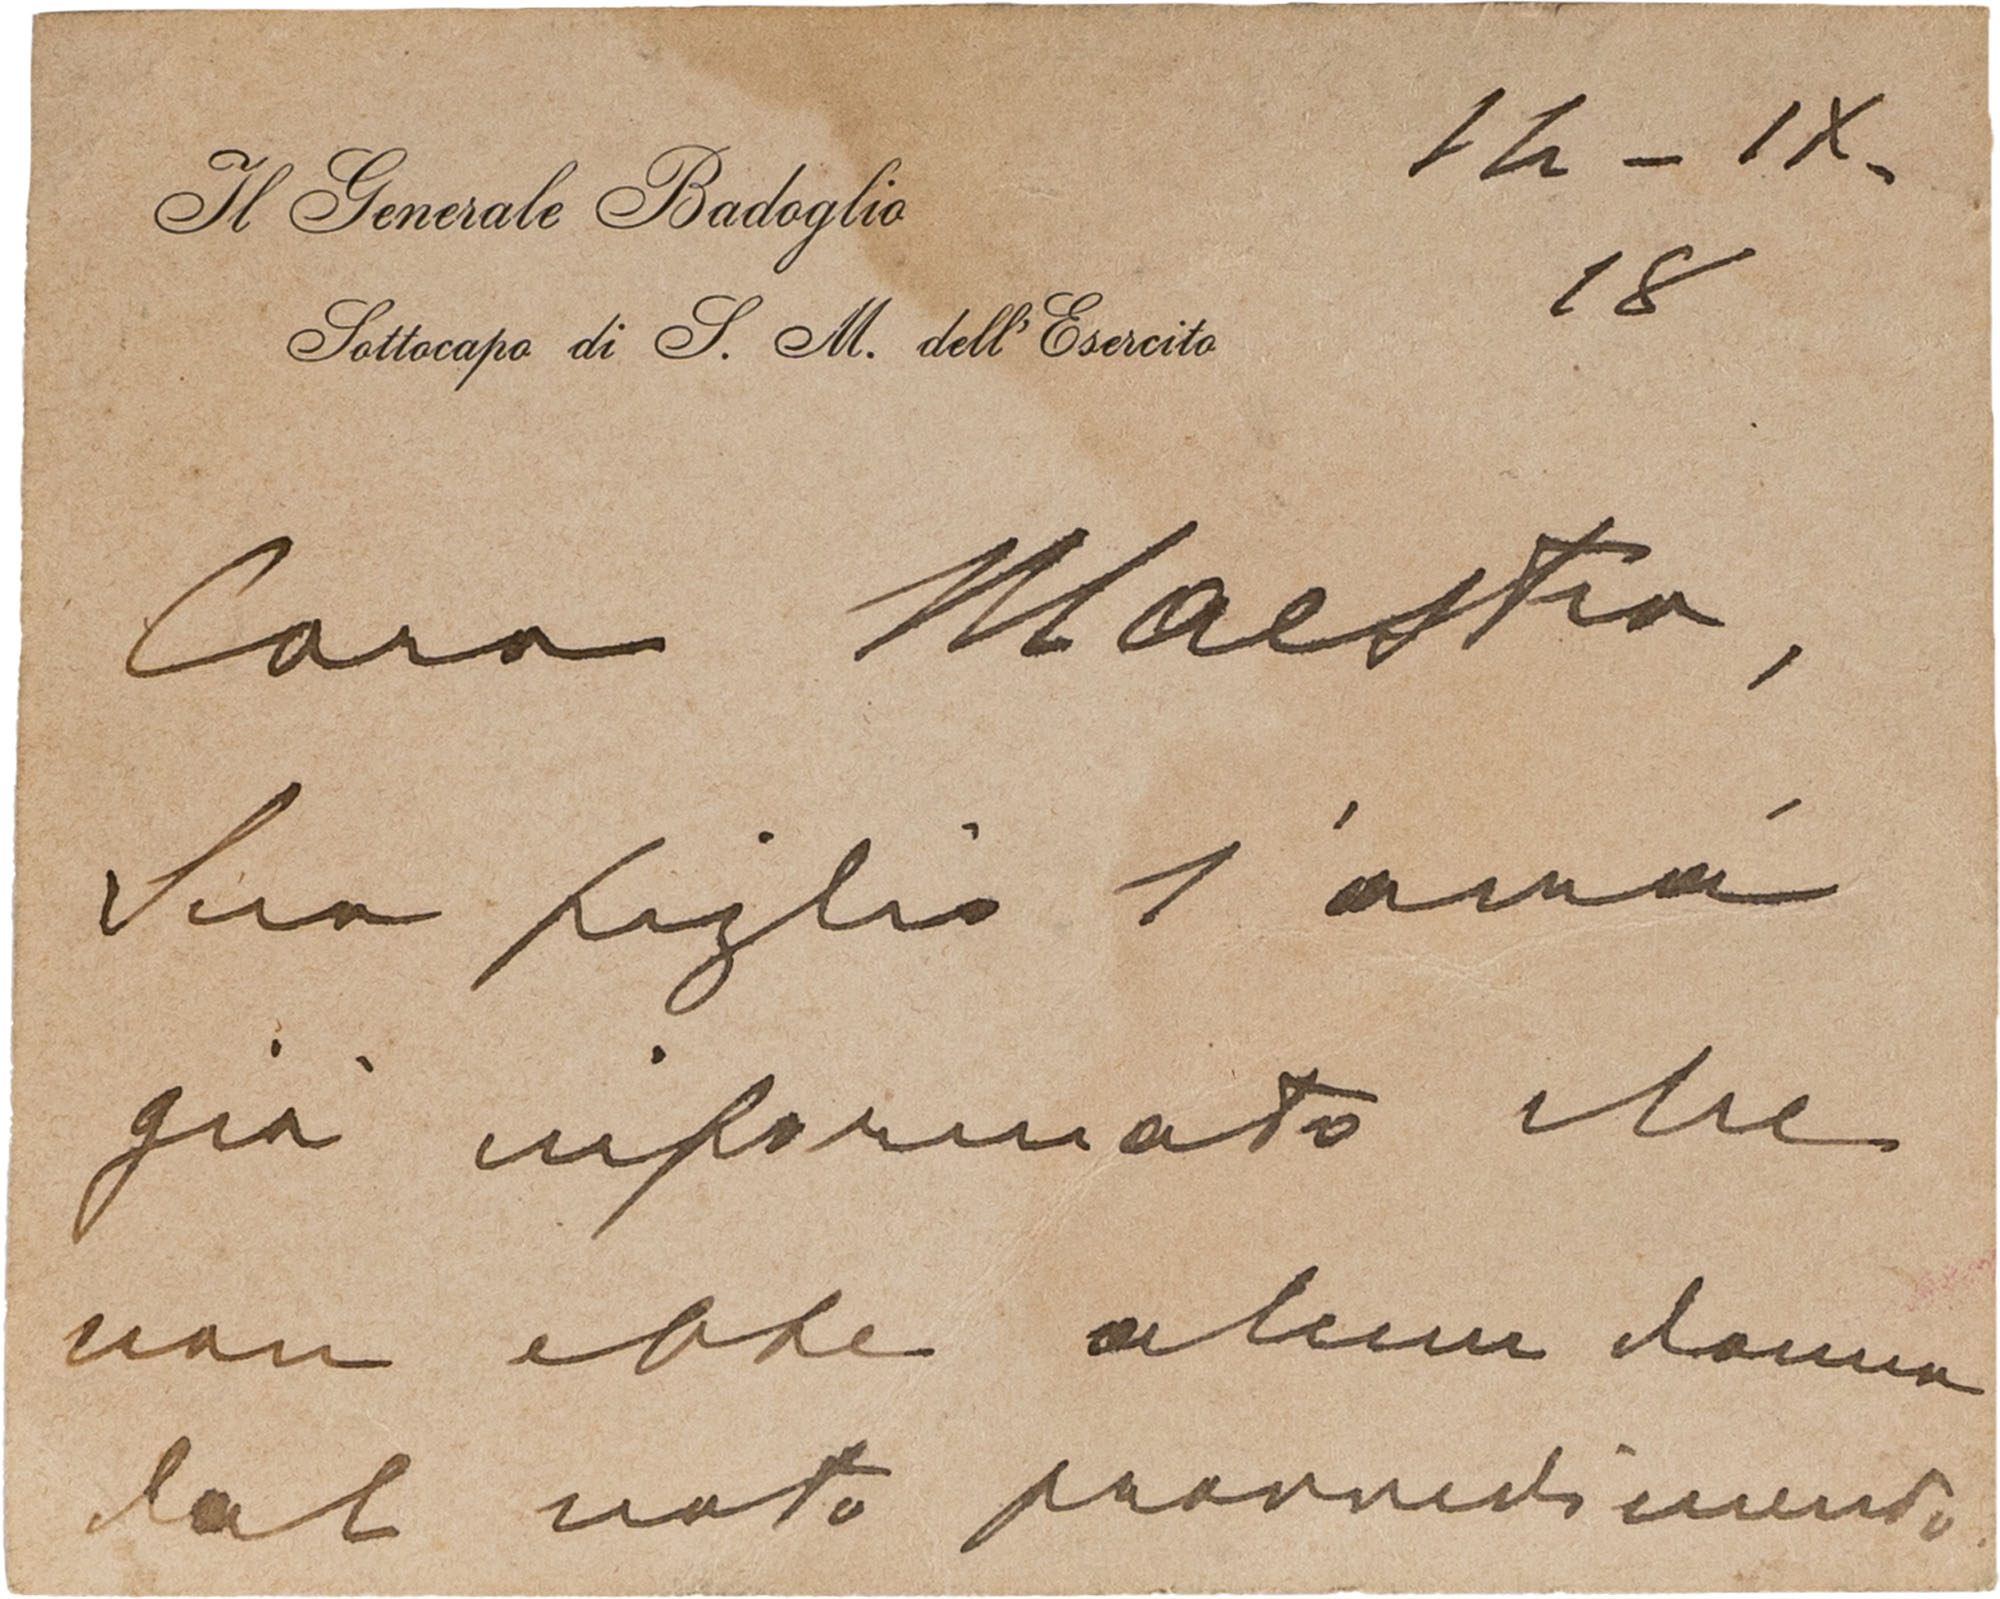 Il Generale Badoglio
Sottocapo di S. M. dell'Esercito
14 - IX -
18
Caro Maestro,
Suo figlio l'avrà
già informato che
non ebbe alcun danno
dal noto provvedimento.